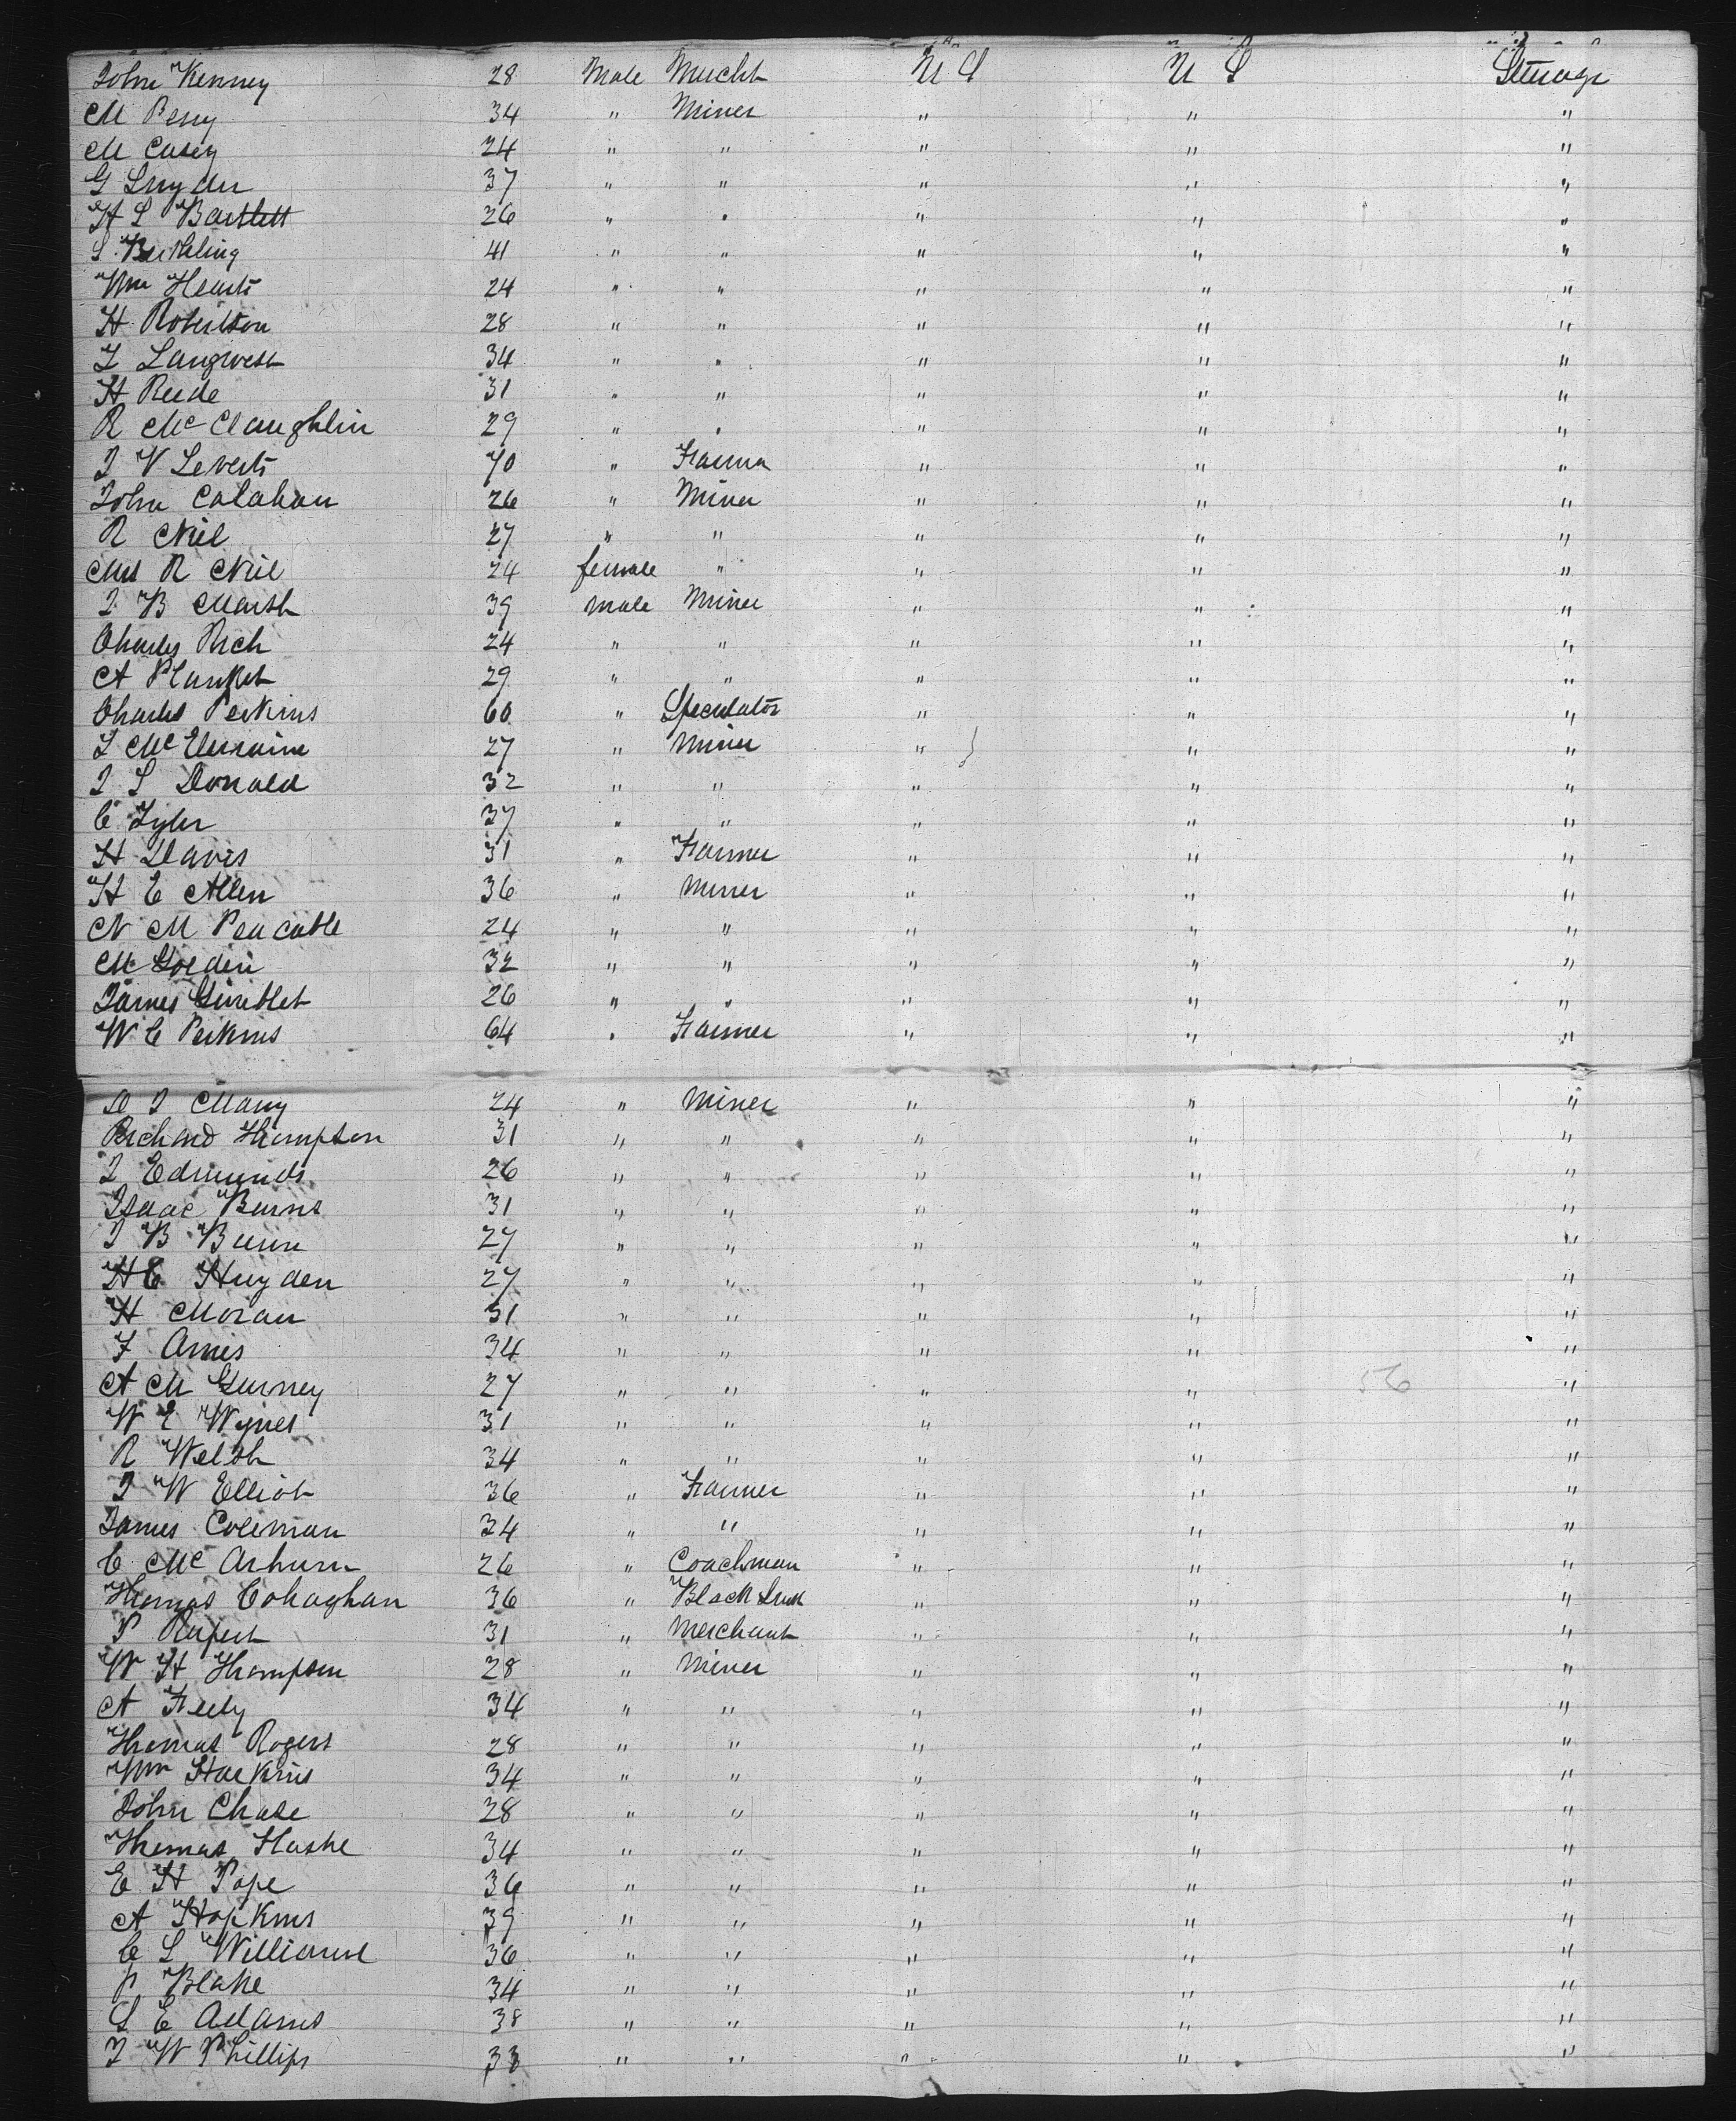 John Kenney 28 Male Mercht U S U S Steerage
M Perry 34 " Miner " " "
M Casey 24 " " " " "
G Snyder 37 " " " " "
H S Bartlett 26 " " " " "
S 41 " " " " "
Wm 24 " " " " "
H Robertson 28 " " " " "
34 " " " " "
H Reede 31 " " " " "
R McClaughlin 29 " " " " "
J V 70 " Farmer " " "
John Calahan 26 " Miner " " "
R Neil 27 " " " " "
Mrs R Neil 24 female " " " "
J B Marsh 39 male Miner " " "
Charles Rich 24 " " " " "
A Plunket 29 " " " " "
Charles Perkins 60 " Speculator " " "
27 " Miner " " "
J S Donald 32 " " " " "
C Tyler 37 " " " " "
H Davis 31 " Farmer " " "
H E Allen 36 " Miner " " "
N M Peacable 24 " " " " "
M Golden 32 " " " " "
James Gimblet 26 " " " " "
W C Perkins 64 " Farmer " " "
D J Many 24 " Miner " " "
Richard Thompson 31 " " " " "
J Edmunds 26 " " " " "
Isaac Burns 31 " " " " "
J B Bunn 27 " " " " "
H E Huyden 27 " " " " "
H Moran 31 " " " " "
F Ames 34 " " " " "
A M Gurney 27 " " " " "
W E Wynes 31 " " " " "
R Welsh 34 " " " " "
J W Elliot 36 " Farmer " " "
James Coleman 34 " " " " "
C Mc Arhurn 26 " Coachman " " "
Thomas Cohaghan 36 " Black Smth " " "
P Rupert 31 " Merchant " " "
W H Thompson 28 " Miner " " "
A Feely 34 " " " " "
Thomas Rogers 28 " " " " "
Wm Harkins 34 " " " " "
John Chase 28 " " " " "
Thomas 34 " " " " "
E H Pope 36 " " " " "
A Hopkins 39 " " " " "
C L Williams 36 " " " " "
P Blake 34 " " " " "
S E Adams 38 " " " " "
J W Phillips 33 " " " " "